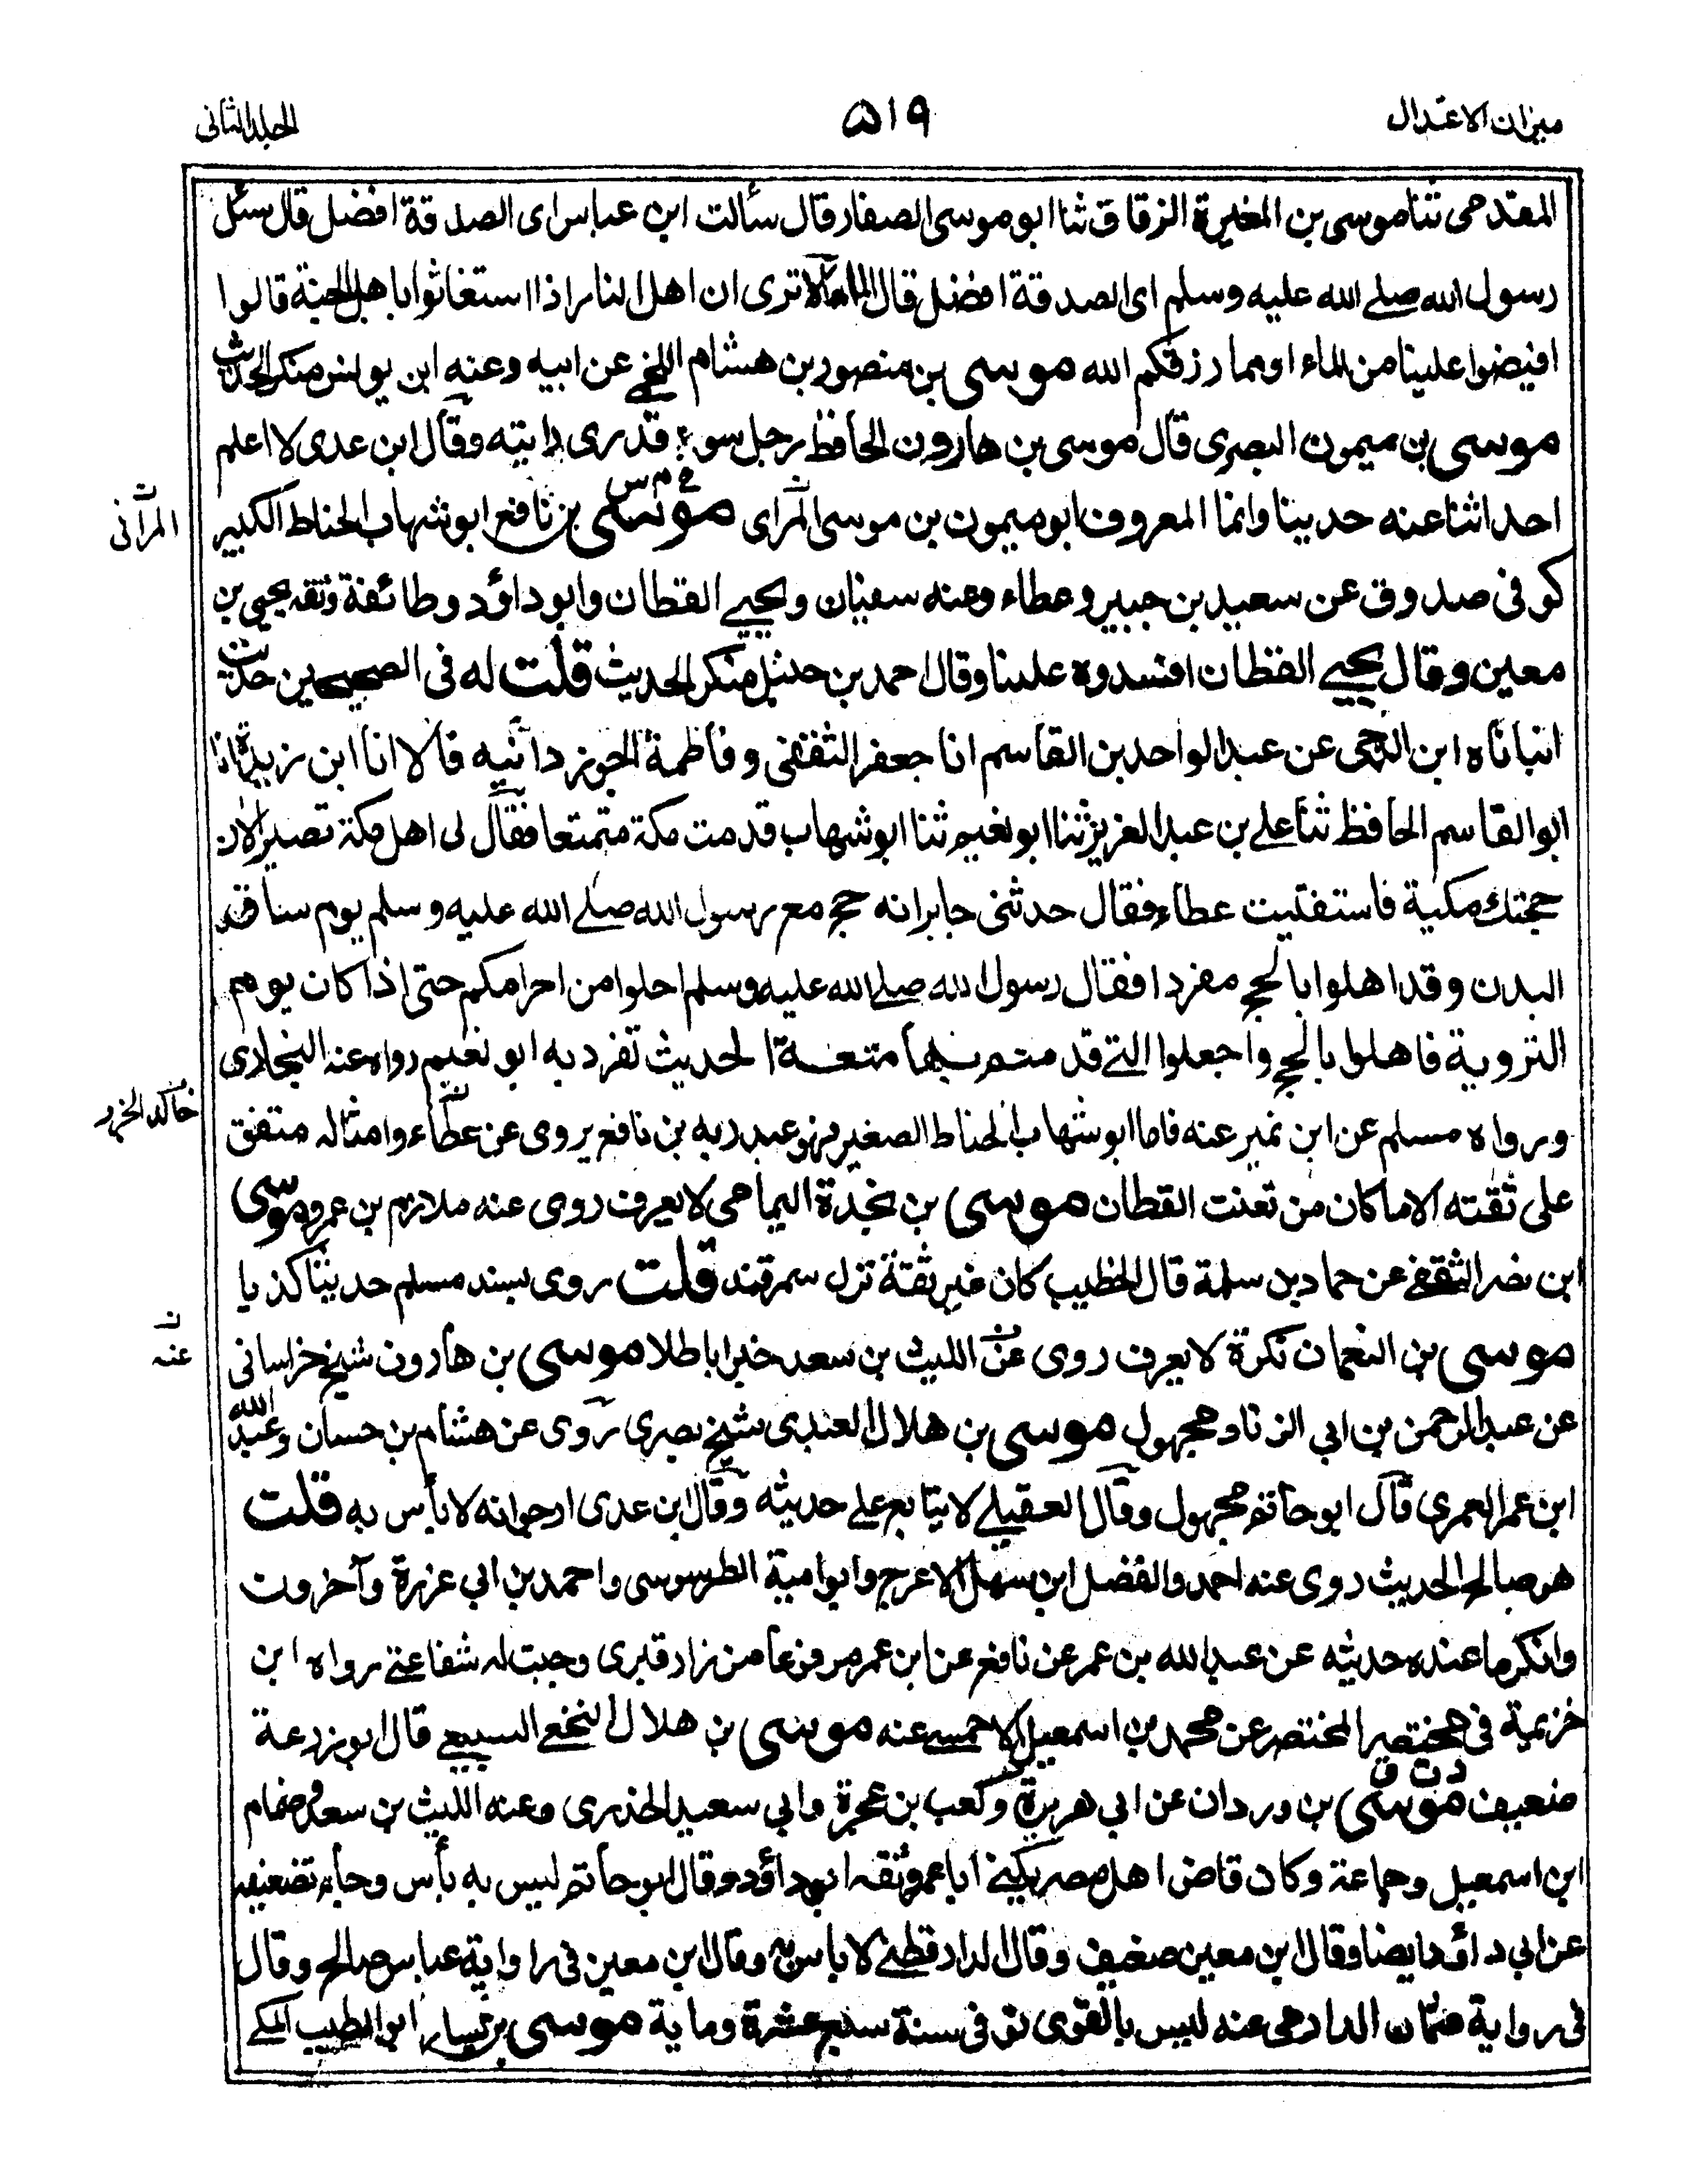 ميزان الاعتدال
٥١٩
الجلد الثانى
المقدمى ثنا موسى بن المغيرة الزقاق ثنا ابو موسى الصفار قال سألت ابن عباس اى الصدقة افضل قال سئل
رسول الله صلى الله عليه وسلم اى الصدقة افضل قال الماء الا ترى ان اهل النار اذا استغاثوا باهل الجنة قالوا
افيضوا علينا من الماء او مما رزقكم الله موسى بن منصور بن هشام اللخمى عن ابيه وعنه ابن يونس منكر الحديث
موسى بن ميمون البصرى قال موسى بن هارون الحافظ رجل سوء قدرى رايته وقال ابن عدى لا اعلم
احدا ثنا عنه حديثا وانما المعروف ابو ميمون بن موسى المراى موسى بن نافع ابو شهاب الحناط الكبير
المرائى
خ م س
كوفى صدوق عن سعيد بن جبير وعطاء وعنه سفيان ويحيى القطان وابو داؤد وطائفة وثقه يحيى بن
معين وقال يحيى القطان افسدوه علينا وقال احمد بن حنبل منكر الحديث قلت له فى الصحيحين حديث
انباناه ابن الدرجى عن عبد الواحد بن القاسم انا جعفر الثقفى وفاطمة الجوزدانيه قالا انا ابن زيدة انا
ابو القاسم الحافظ ثنا على بن عبد العزيز ثنا ابو نعيم ثنا ابو شهاب قدمت مكة متمتعا فقال لى اهل مكة تصير الان
حجتك مكية فاستفتيت عطاء فقال حدثنى جابر انه حج مع رسول الله صلى الله عليه وسلم يوم ساق
البدن وقد اهلوا بالحج مفردا فقال رسول الله صلى الله عليه وسلم احلوا من احرامكم حتى اذا كان يوم
التروية فاهلوا بالحج واجعلوا التى قدمتم بها متعة الحديث تفرد به ابو نعيم رواه عنه البخارى
ورواه مسلم عن ابن نمير عنه فاما ابو شهاب الحناط الصغير فهو عبد ربه بن نافع يروى عن عطاء وامثاله متفق
على ثقته الا ما كان من تعنت القطان موسى بن نجدة اليمامى لا يعرف روى عنه ملازم بن عمرو موسى
ابن نصر الثقفى عن حماد بن سلمة قال الخطيب كان غير ثقة نزل سمرقند قلت روى بسند مسلم حديثا كذبا
موسى بن النعمان نكرة لا يعرف روى عن الليث بن سعد خبرا باطلا موسى بن هارون شيخ خراسانى
عنه
عن عبد الرحمن بن ابى الزناد مجهول موسى بن هلال العبدى شيخ بصرى روى عن هشام بن حسان وعبد الله
ابن عمر العمرى قال ابو حاتم مجهول وقال العقيلى لا يتابع على حديثه وقال ابن عدى ارجو انه لا بأس به قلت
هو صالح الحديث روى عنه احمد والفضل ابن سهل الاعرج وابو امية الطرسوسى واحمد بن ابى غرزة وآخرون
وانكر ما عنده حديثه عن عبد الله بن عمر عن نافع عن ابن عمر مرفوعا من زار قبرى وجبت له شفاعتى رواه ابن
خزيمة فى مختصر المختصر عن محمد بن اسمعيل الاحمسى عنه موسى بن هلال النخعى السبيعى قال ابو زرعة
د ت ق
ضعيف موسى بن وردان عن ابى هريرة وكعب بن عجرة وابى سعيد الخدرى وعنه الليث بن سعد وضمام
ابن اسمعيل وجماعة وكان قاض اهل مصر يكنى ابا عمر وثقه ابو داؤد وقال ابو حاتم ليس به بأس وجاء تضعيفه
عن ابى داؤد ايضا وقال ابن معين ضعيف وقال الدارقطنى لا باس به وقال ابن معين فى رواية عباس صالح وقال
فى رواية عثمان الدارمى عنه ليس بالقوى توفى سنة سبع عشرة وماية موسى بن يسار ابو الطيب المكى